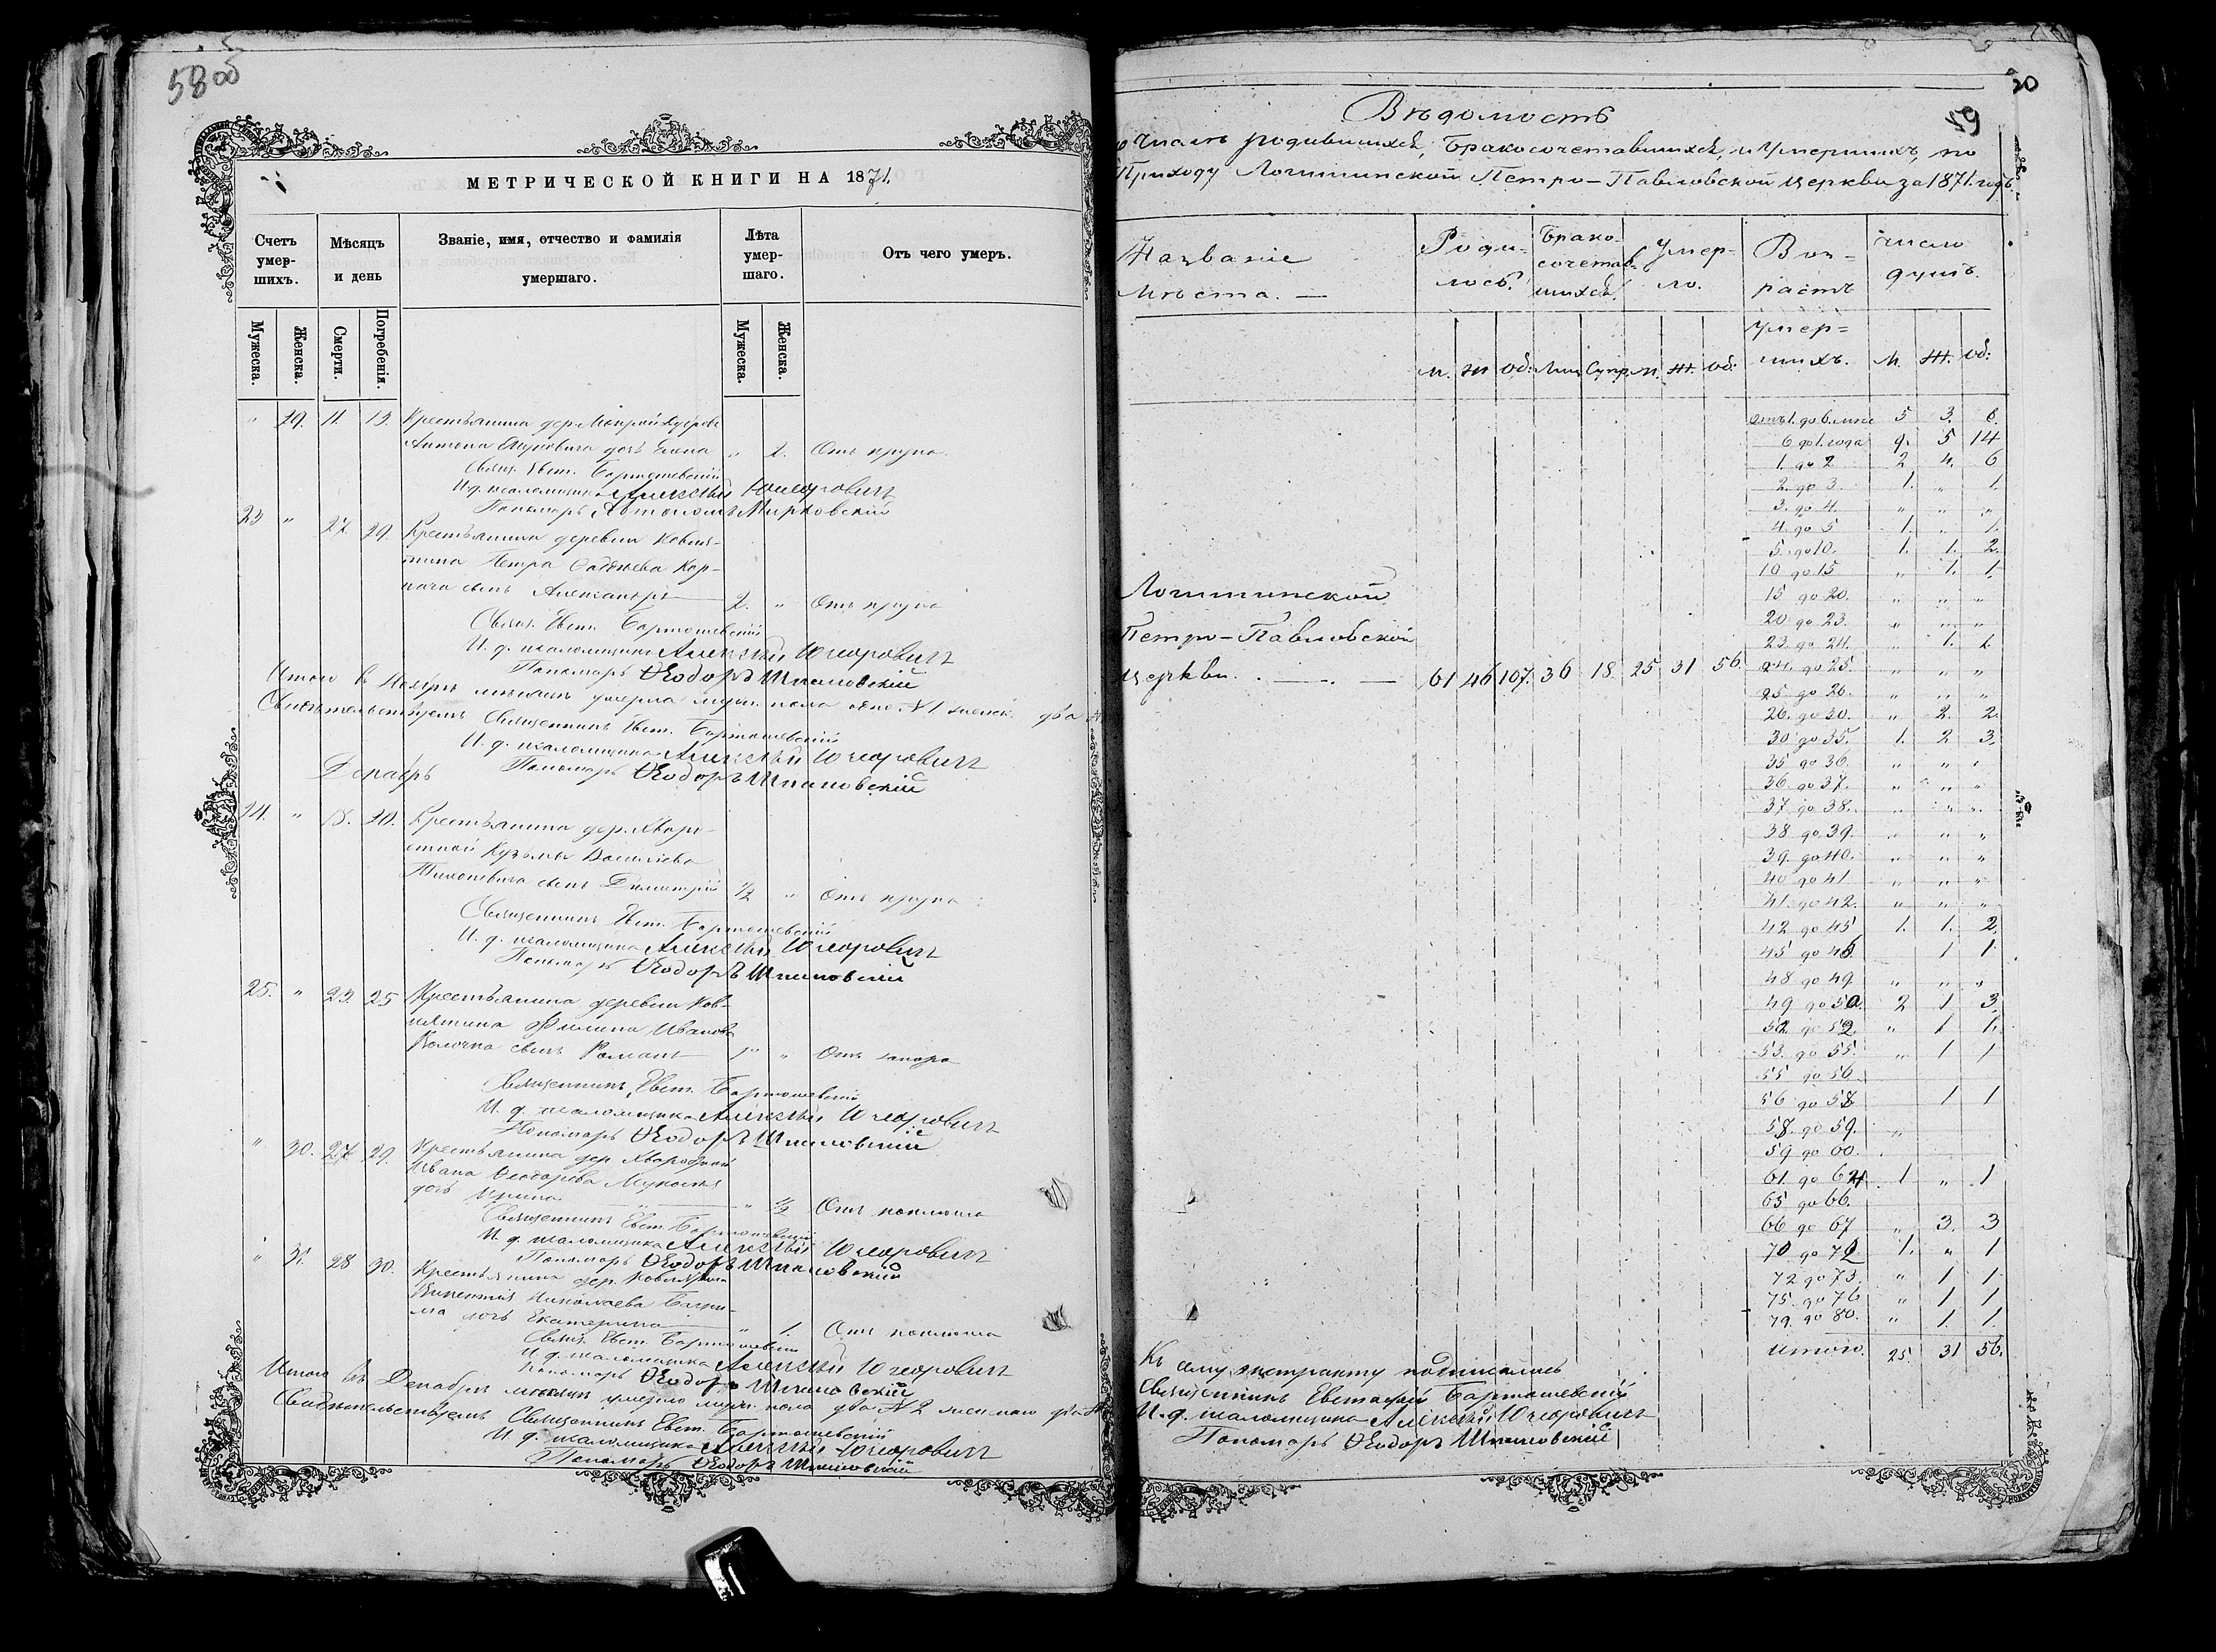 58 об
МЕТРИЧЕСКОЙ КНИГИ НА 1871.
Счетъ умер-шихъ.
Мѣсяцъ и день
Званіе, имя, отчество и фамилія умершаго.
Лѣта умер-шаго.
Отъ чего умеръ.
Мужеска.
Женска.
Смерти.
Погребенія.
Мужеска.
Женска.
" 29. 11. 13. Крестьянина дер.
Антона дочь Елена " 2. Отъ крупа.
Свящ. Евст. Бартошевскій
И. д. псаломщика Алексѣй Ючеровичъ
Пономарь Мирковскій
23 " 27. 29. Крестьянина деревни Ковня-
тина Петра Кор-
сынъ Александръ 2. " Отъ крупа
Свящ. Евст. Бартошевскій
И. д. псаломщика Алексѣй Ючеровичъ
Пономарь Ѳеодоръ Шпаковскій
Итого въ Ноябрѣ мѣсяцѣ умерло муж. пола одно № 1 женск. два
Свидѣтельствуемъ Священникъ Евст. Бартошевскій
И. д. псаломщика Алексѣй Ючеровичъ
Пономарь Ѳеодоръ Шпаковскій
Декабрь
24. " 18. 20. Крестьянина дер. Хворо-
стной Кузьмы
сынъ Димитрій 1/2 " Отъ крупа
Священникъ Евст. Бартошевскій
И. д. псаломщика Алексѣй Ючеровичъ
Пономарь Ѳеодоръ Шпаковскій
25. " 23. 25 Крестьянина деревни Ков-
нятина Филипа Иванова
сынъ Романъ " Отъ
Священникъ Евст. Бартошевскій
И. д. псаломщика Алексѣй Ючеровичъ
Пономарь Ѳеодоръ Шпаковскій
" 30. 27 29. Крестьянина дер.
Ивана Ѳеодорова
дочь Ирина " 1/2 Отъ коклюша
Священникъ Евст. Бартошевскій
И. д. псаломщика Алексѣй Ючеровичъ
Пономарь Ѳеодоръ Шпаковскій
" 31. 28 30. Крестьянина дер. Ковнятина
Викентія Николаева
дочь Екатерина " 1. Отъ коклюша
Свящ. Евст. Бартошевскій
И. д. псаломщика Алексѣй Ючеровичъ
Пономарь Ѳеодоръ Шпаковскій
Итого въ Декабрѣ мѣсяцѣ умерло муж. пола два № 2 женскаго два
Свидѣтельствуемъ Священникъ Евст. Бартошевскій
И. д. псаломщика Алексѣй Ючеровичъ
Пономарь Ѳеодоръ Шпаковскій
59
Вѣдомость
о числѣ родившихся, бракосочетавшихся, и умершихъ, по
Приходу Логишинской Петро-Павловской церкви за 1871. годъ.
Названіе мѣста. —
Роди-лось.
Брако-сочетав-шихся.
Умер-ло.
Воз-растъ умер-шихъ.
число душъ.
М. Ж Об: Лиц Супр. М. Ж. Об: М. Ж. Об:
Логишинской
Петро-Павловской
церкви. — 61 46 107. 36 18. 25 31 56.
отъ 1. до 6. мѣс 5 3. 8.
6 до 1. года 9. 5 14
1. до 2 2 4. 6
2. до 3. 1. " 1.
3. до 4. " " "
4. до 5 1. " 1.
5. до 10. 1. 1. 2.
10 до 15 " 1. 1.
15 до 20. " " "
20 до 23. " " "
23 до 24. " 1. 1.
24. до 25. " " "
25 до 26. " " "
26. до 30. " 2. 2.
30 до 35. 1. 2 3.
35 до 36. " " "
36 до 37. " " "
37 до 38. " " "
38 до 39. " " "
39. до 40. " " "
40 до 41 " " "
41 до 42. " " "
42 до 45 1. 1. 2.
45 до 48. 1 1
48 до 49. " " "
49 до 50 2 1 3.
до 52. " 1 1.
53. до 55. " 1 1
55 до 56.
56 до 58 1 1
58. до 59. "
59 до 60.
61 до 64 1 " 1
65 до 66.
66 до 67 " 3. 3
70 до 72 1. " 1
72 до 73. " 1 1
75. до 76 " 1 1
79. до 80. " 1. 1.
Итого. 25 31 56.
Къ сему экстракту подписались
Священникъ Евстафій Бартошевскій
И. д. псаломщика Алексѣй Ючеровичъ
Пономарь Ѳеодоръ Шпаковскій